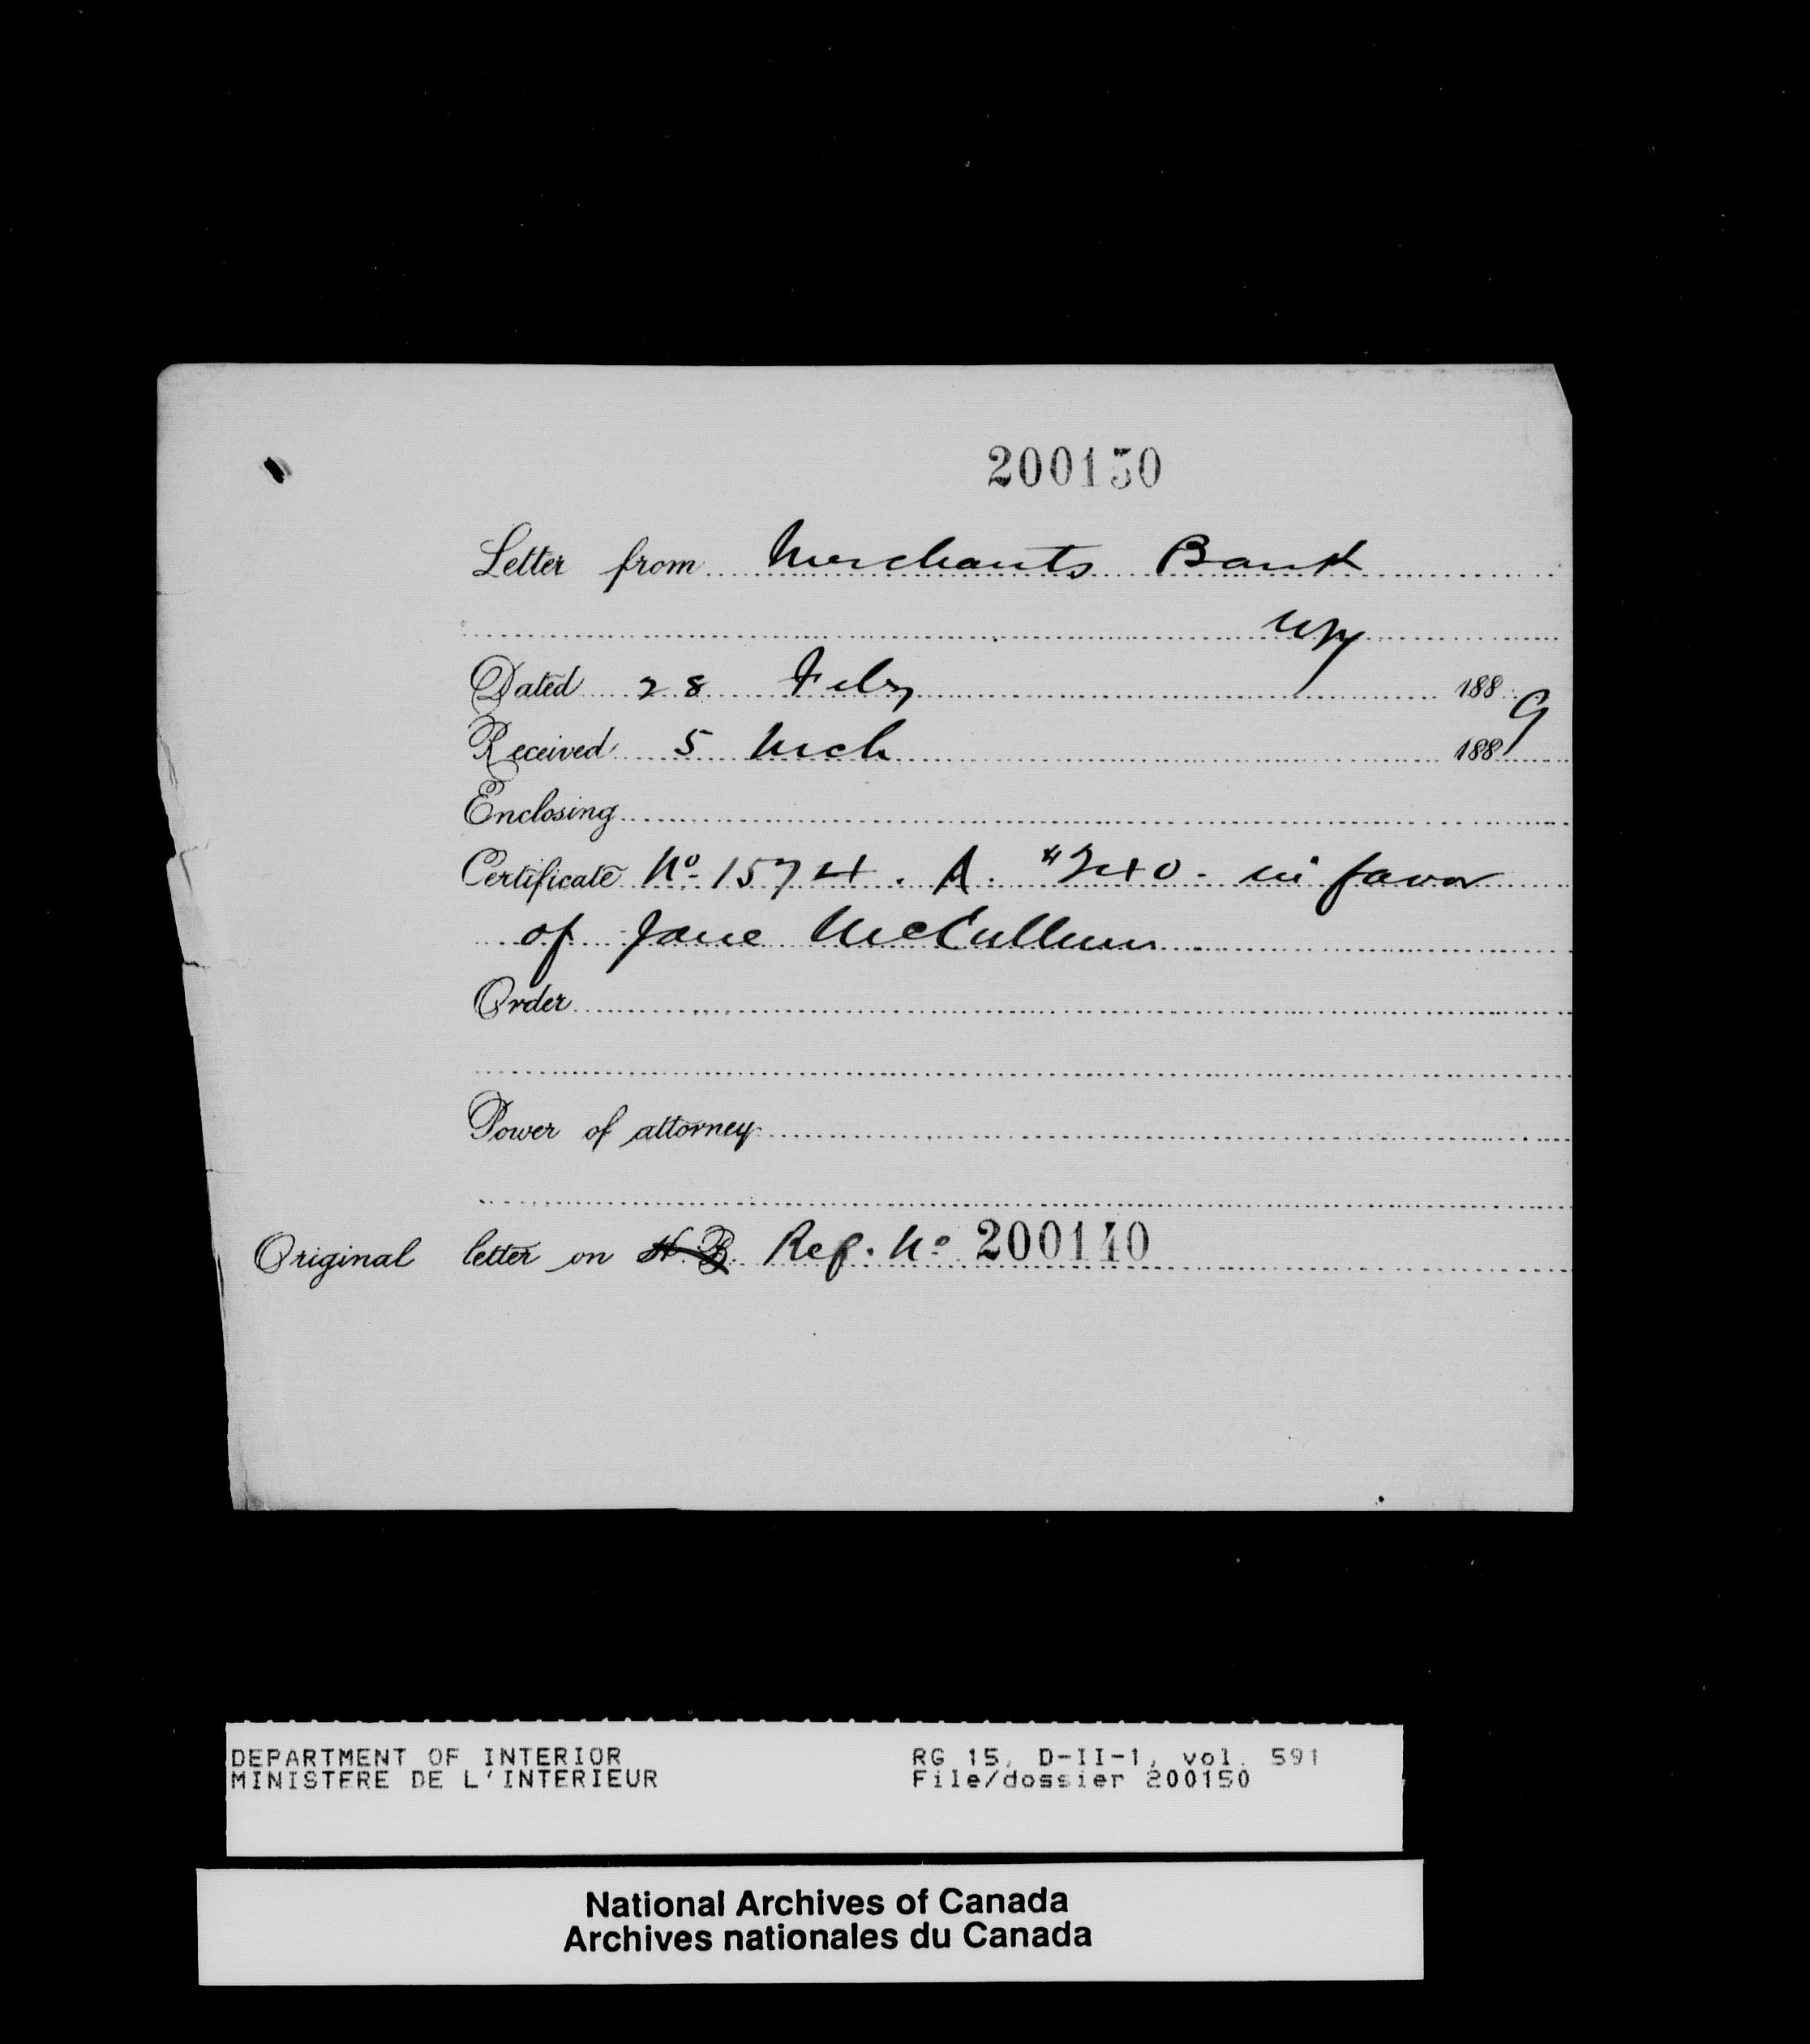 200150
Letter from Merchants Bank
Wpg
Dated 28 Feby 1889
Received 5 Mch 1889
Enclosing
Certificate No 1574. A. $240. in favor
of Jane McCullum
Order
Power of attorney
Original letter on N.B. Ref. No 200140
DEPARTMENT OF INTERIOR RG 15, D-II-1, vol. 591
MINISTERE DE L'INTERIEUR File/dossier 200150
National Archives of Canada
Archives nationales du Canada